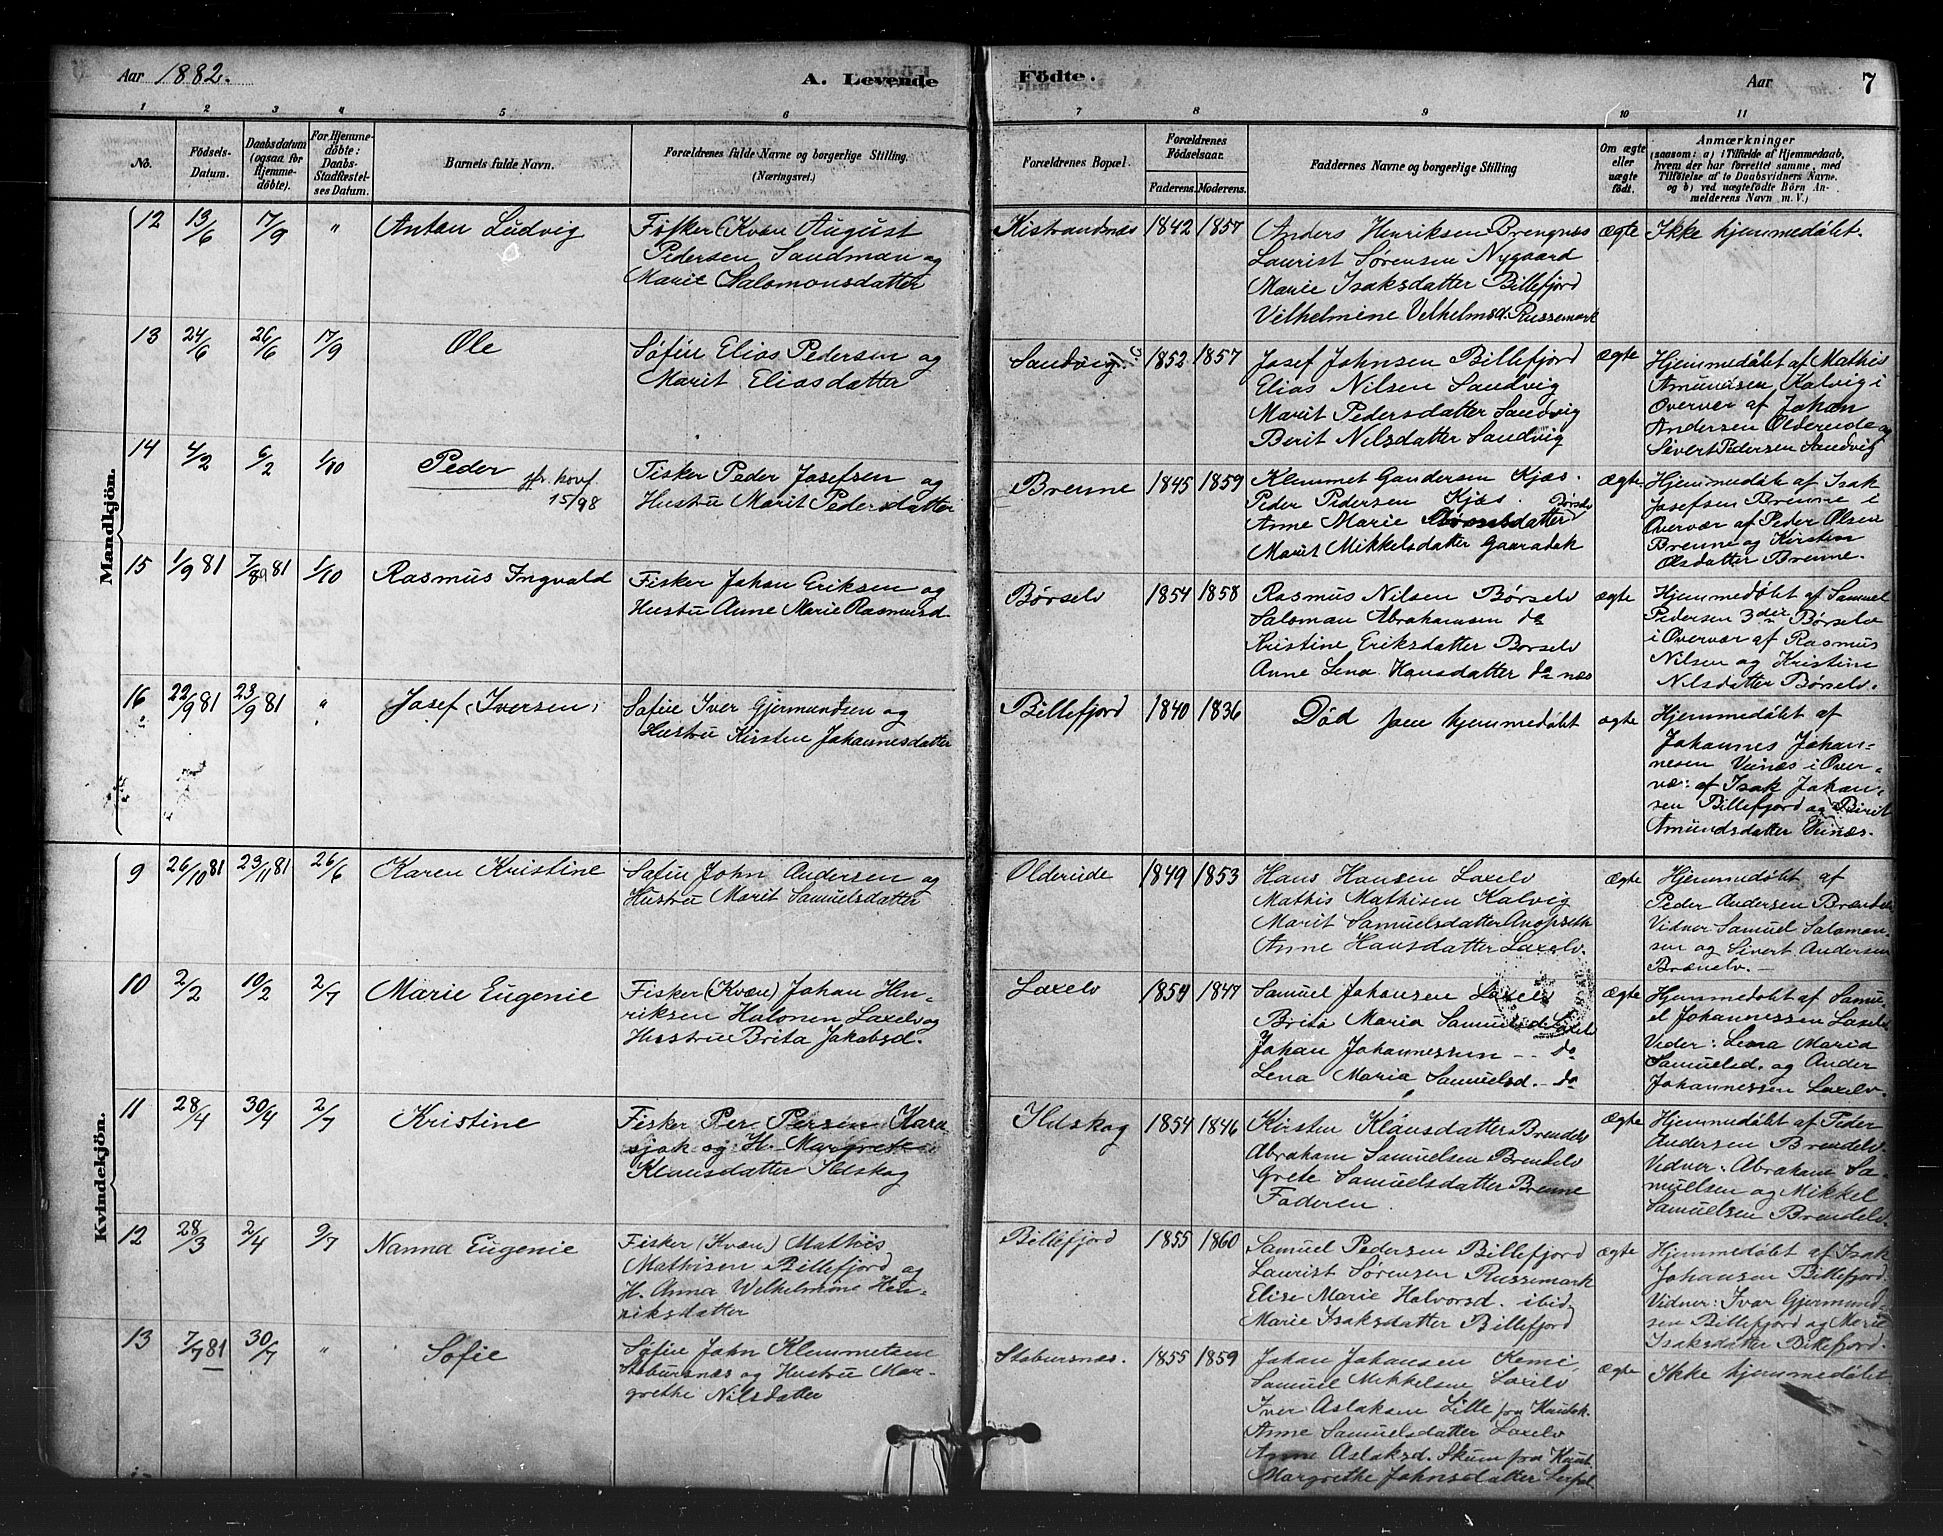 Aar 1882.
A. Levende Födte.
Aar
7
1 2 3 4 5 6 7 8 9 10 11
No.
Födsels-
Datum.
Daabsdatum
(ogsaa for
Hjemme-
döbte).
For Hjemme-
döbte:
Daabs-
Stadfæstel-
ses Datum.
Barnets fulde Navn.
Forældrenes fulde Navne og borgerlige Stilling.
(Næringsvei.)
Forældrenes Bopæl.
Forældrenes
Födselsaar.
Faderens. Moderens.
Faddernes Navne og borgerlige Stilling
Om ægte
eller
uægte
födt.
Anmærkninger
(saasom: a) i Tilfælde af Hjemmedaab,
hvem der har forrettet samme, med
Tilföielse af to Daabsvidners Navne,
og b) ved uægtefödte Börn An-
melderens Navn m. V.)
Mandkjön.
12 13/6 17/9 " Anton Ludvig
Fisker (Kvæn August
Pedersen Sandman og
Marie Salomonsdatter
Kistrandnæs 1842 1857
Anders Henriksen Brengnæs
Laurist Sørensen Nygaard
Marie Isaksdatter Billefjord
Vilhelmine Velhelmsd. Russemark
ægte
Ikke hjemmedøbt.
13 24/6 26/6 17/9 Ole
Søfin Elias Pedersen og
Marit Eliasdatter
Sandvig 1852 1857
Josef Johnsen Billefjord
Elias Nilsen Sandvig
Marit Pedersdatter Sandvig
Berit Nilsdatter Sandvig
ægte
Hjemmedøbt af Mathis
Amundsen Kalvig i
Overvær af Johan
Andersen Olderude og
Sivert Pedersen Sandvig
14 4/2 6/2 1/10 Peder
jfr. konf.
15/98
Fisker Peder Josefsen og
Hustru Marit Pedersdatter
Brenne 1845 1859
Klemmet Gundersen Kjæs.
Peder Pedersen Kjæs.
Anne Marie datter Børselv
Marit Mikkelsdatter
ægte
Hjemmedøbt af Isak
Josefsen Brenne i
Overvær af Peder Olsen
Brenne og Kirsten
Olsdatter Brenne.
15 1/9 81 7/9 81 1/10 Rasmus Ingvald
Fisker Johan Eriksen og
Hustru Anne Marie Rasmusd.
Børselv 1854 1858
Rasmus Nilsen Børselv
Saloman Abrahamsen do
Kristine Eriksdatter Børselv
Anne Lena Hansdatter do næs
ægte
Hjemmedøbt af Samuel
Pedersen 3die Børselv
i Overvær af Rasmus
Nilsen og Kristine
Nilsdatter Børselv.
16 22/9 81 23/9 81 " Josef (Iversen)
Søfin Iver Gjermundsen og
Hustru Kirsten Johannesdatter
Billefjord 1840 1836
Død som hjemmedøbt
ægte
Hjemmedøbt af
Johannes Johan-
nesen Veinæs i Over-
væ: af Isak Johan-
sen Billefjord og Birit
Amundsdatter Veinæs.
Kvindekjön.
9 26/10 81 23/11 81 26/6 Karen Kristine
Søfin John Andersen og
Hustru Marit Samuelsdatter
Olderude 1849 1853
Hans Hansen Laxelv
Mathis Mathisen Kalvig
Marit Samuelsdatter
Anne Hansdatter Laxelv
ægte
Hjemmedøbt af
Peder Andersen Brændelv
Vidner Samuel Salomon-
sen og Sivert Andersen
Brænelv.
10 2/2 10/2 2/7 Marie Eugenie
Fisker (Kvæn) Johan Hen-
riksen Halonen Laxelv og
Hustru Brita Jakobsd.
Laxelv 1854 1847
Samuel Johansen Laxelv
Brita Maria Samuelsd Laxelv
Johan Johannessen - - do
Lena Maria Samuelsd. - do
ægte
Hjemmedøbt af Samu-
el Johannessen Laxelv
Vidner: Lena Maria
Samuelsd. og Ander
Johannessen Laxelv.
11 28/4 30/4 2/7 Kristine
Fisker Per Persen Kara-
sjok og H. Margrete
Klausdatter Ildskog
Ildskog 1854 1846
Kirsten Klausdatter Brendelv
Abraham Samuelsen Brendelv
Grete Samuelsdatter Brenne
Faderen.
ægte
Hjemmedøbt af Peder
Andersen Brendelv.
Vidner: Abraham Sa-
muelsen og Mikkel
Samuelsen Brendelv.
12 28/3 2/4 9/7 Nanna Eugenie
Fisker (Kvæn) Mathis
Mathisen Billefjord og
H. Anna Wilhelmine Hen-
riksdatter
Billefjord 1855 1860
Samuel Pedersen Billefjord
Laurist Sørensen Russemark
Elise Marie Halvorsd. ibid
Marie Isaksdatter Billefjord
ægte
Hjemmedøbt af Isak
Johansen Billefjord.
Vidner: Ivar Gjermund-
sen Billefjord og Marie
Isaksdatter Billefjord.
13 7/7 81 30/7 " Sofie
Søfin John Klemmetsen
Stabursnæs og Hustru Mar-
grethe Nilsdatter
Stabursnæs. 1855 1859
Johan Johansen Kemi,
Samuel Mikkelsen Laxelv
Iver Aslaksen Lille fra Kautok.
Anne Samuelsdatter Laxelv
Anne Aslaksd. Skum fra Kaut.
Margrethe Johnsdatter
ægte
Ikke hjemmedøbt